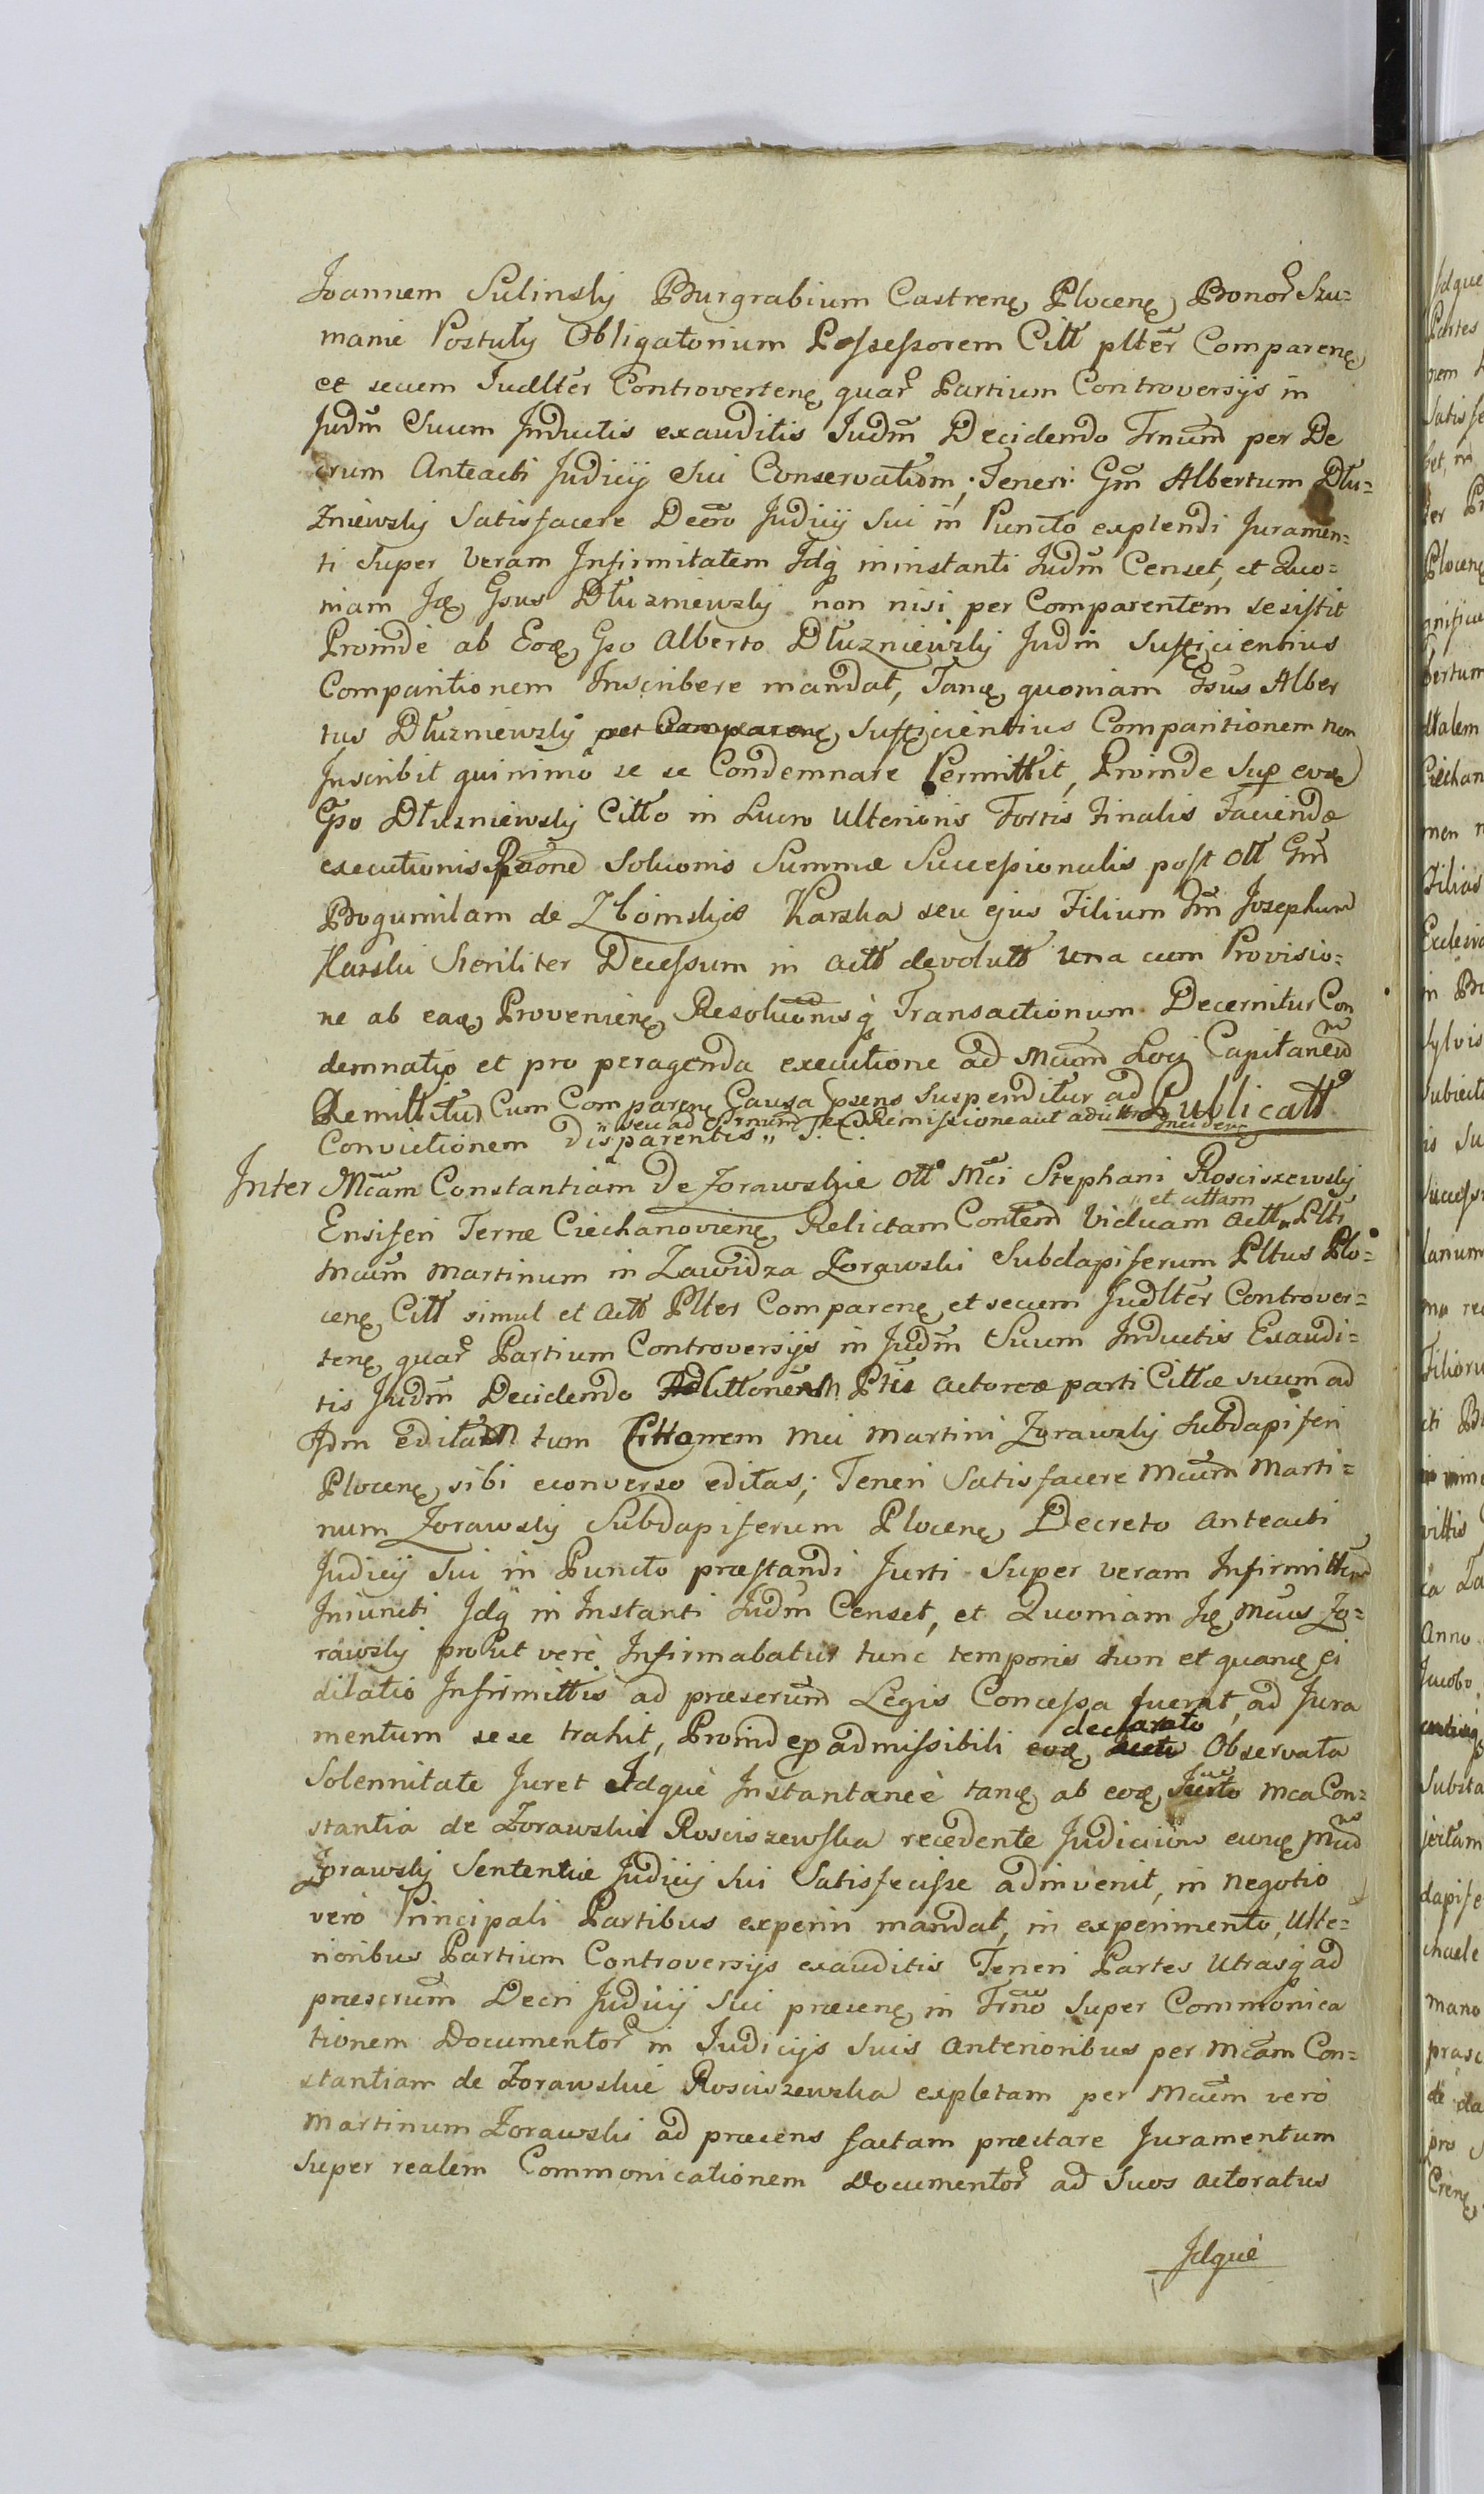 Joannem Sulinsky Burgrabium Castrenę Plocenę Bonor Szu=
manie Postuły Obligatorium Possessorem Citt plter Comparenę
et secum Judlter Controvertenę quar Partium Controversijs in
Judm Suum Inductis exauditis Judm Decidendo Trnum per De
crum Anteacti Judicij Sui Conservatum; Teneri Gm Albertum Dłu=
zniewsky Satisfacere Decro Judicij Sui in Puncto explendi Juramen=
ti Super Veram Infirmitatem Idq in instanti Judm Censet, et Quo=
niam Ję Gsus Dłuzniewsky non nisi per Comparentem se sistit
Proinde ab Eoę Gso Alberto Dłuzniewsky Judm Sufficientius
Comparitionem Inscribere mandat, Tanę quoniam Gsus Alber
tus Dłuzniewsky per Comparenę Sufficientius Comparitionem non
Inscribit quinimo se se Condemnare Permittit, Proinde Sup eoę
Gso Dłuzniewsky Citto in Lucro Ulterioris Fortis Finalis Faciendæ
executionis Raone Soluonis Summæ Successionalis post Ott Gm
Bogumilam de Zboinskie Karska seu ejus Filium Gm Josephum
Karski Steriliter Decessum in actt devolutt una cum Provisio=
ne ab eaę Provenienę Resoluonisq Transactionum Decernitur Con
demnatio et pro peragenda executione ad Mcum Loci Capitaneum
Remittitur Cum Comparenę Causa psens Suspenditur ad Publicatt
seu ad Remissione aut
Convictionem disparentis
Inter Mcam Constantiam De Zorawskie Ott Mci Stephani Rosciszewsky
et cittam
Ensiferi Terræ Ciechanovienę Relictam Contem Viduam actt Plti
Mcum Martinum in Zawidza Zorawski Subdapiferum Pltus Plo=
cenę Citt simul et actt Plter Comparenę et secum Judlter Controver=
tenę quar Partium Controversijs in Judm Suum Inductis Exaudi=
tis Judm Decidendo Ptis actoreæ parti Cittæ suum ad
Idm editam tum Cittonem Mci Martini Zorawsky Subdapiferi
Plocenę sibi econverso editas; Teneri Satisfacere Mcum Marti=
num Zorawsky Subdapiferum Plocenę Decreto Anteacti
Judicij Sui in Puncto præstandi Jurti Super veram Infirmittem
Iniuncti Idq in Instanti Judm Censet, et Quoniam Ję Mcus Zo=
rawsky prout verè Infirmabatur tunc temporis tum et quanę ei
dilatio Infirmittis ad præscrum Legis Concessa fuerat, ad Jura
mentum se se trahit, Proinde p admissibili eoę declarato Observata
Solennitate Juret Idquè Instantaneè tanę ab eoę Jurto Mca Con=
stantia de Zorawskie Rosciszewska recedente Judicium eunę Mcum
Zorawsky Sententiæ Judicij Sui Satisfecisse adinvenit, in negotio
verò Principali Partibus experiri mandat, in experimento, Ulte=
rioribus Partium Controversijs exauditis Teneri Partes Utrasq ad
præscrum Decri Judicij Sui præcenę in Trno Super Commonica
tionem Documentor in Judicijs Suis Anterioribus per Mcam Con=
stantiam de Zorawskie Rosciszewska expletam per Mcum verò
Martinum Zorawski ad præcens factam præstare Juramentum
Super realem Commonicationem Documentor ad Suos actoratus
Idquè